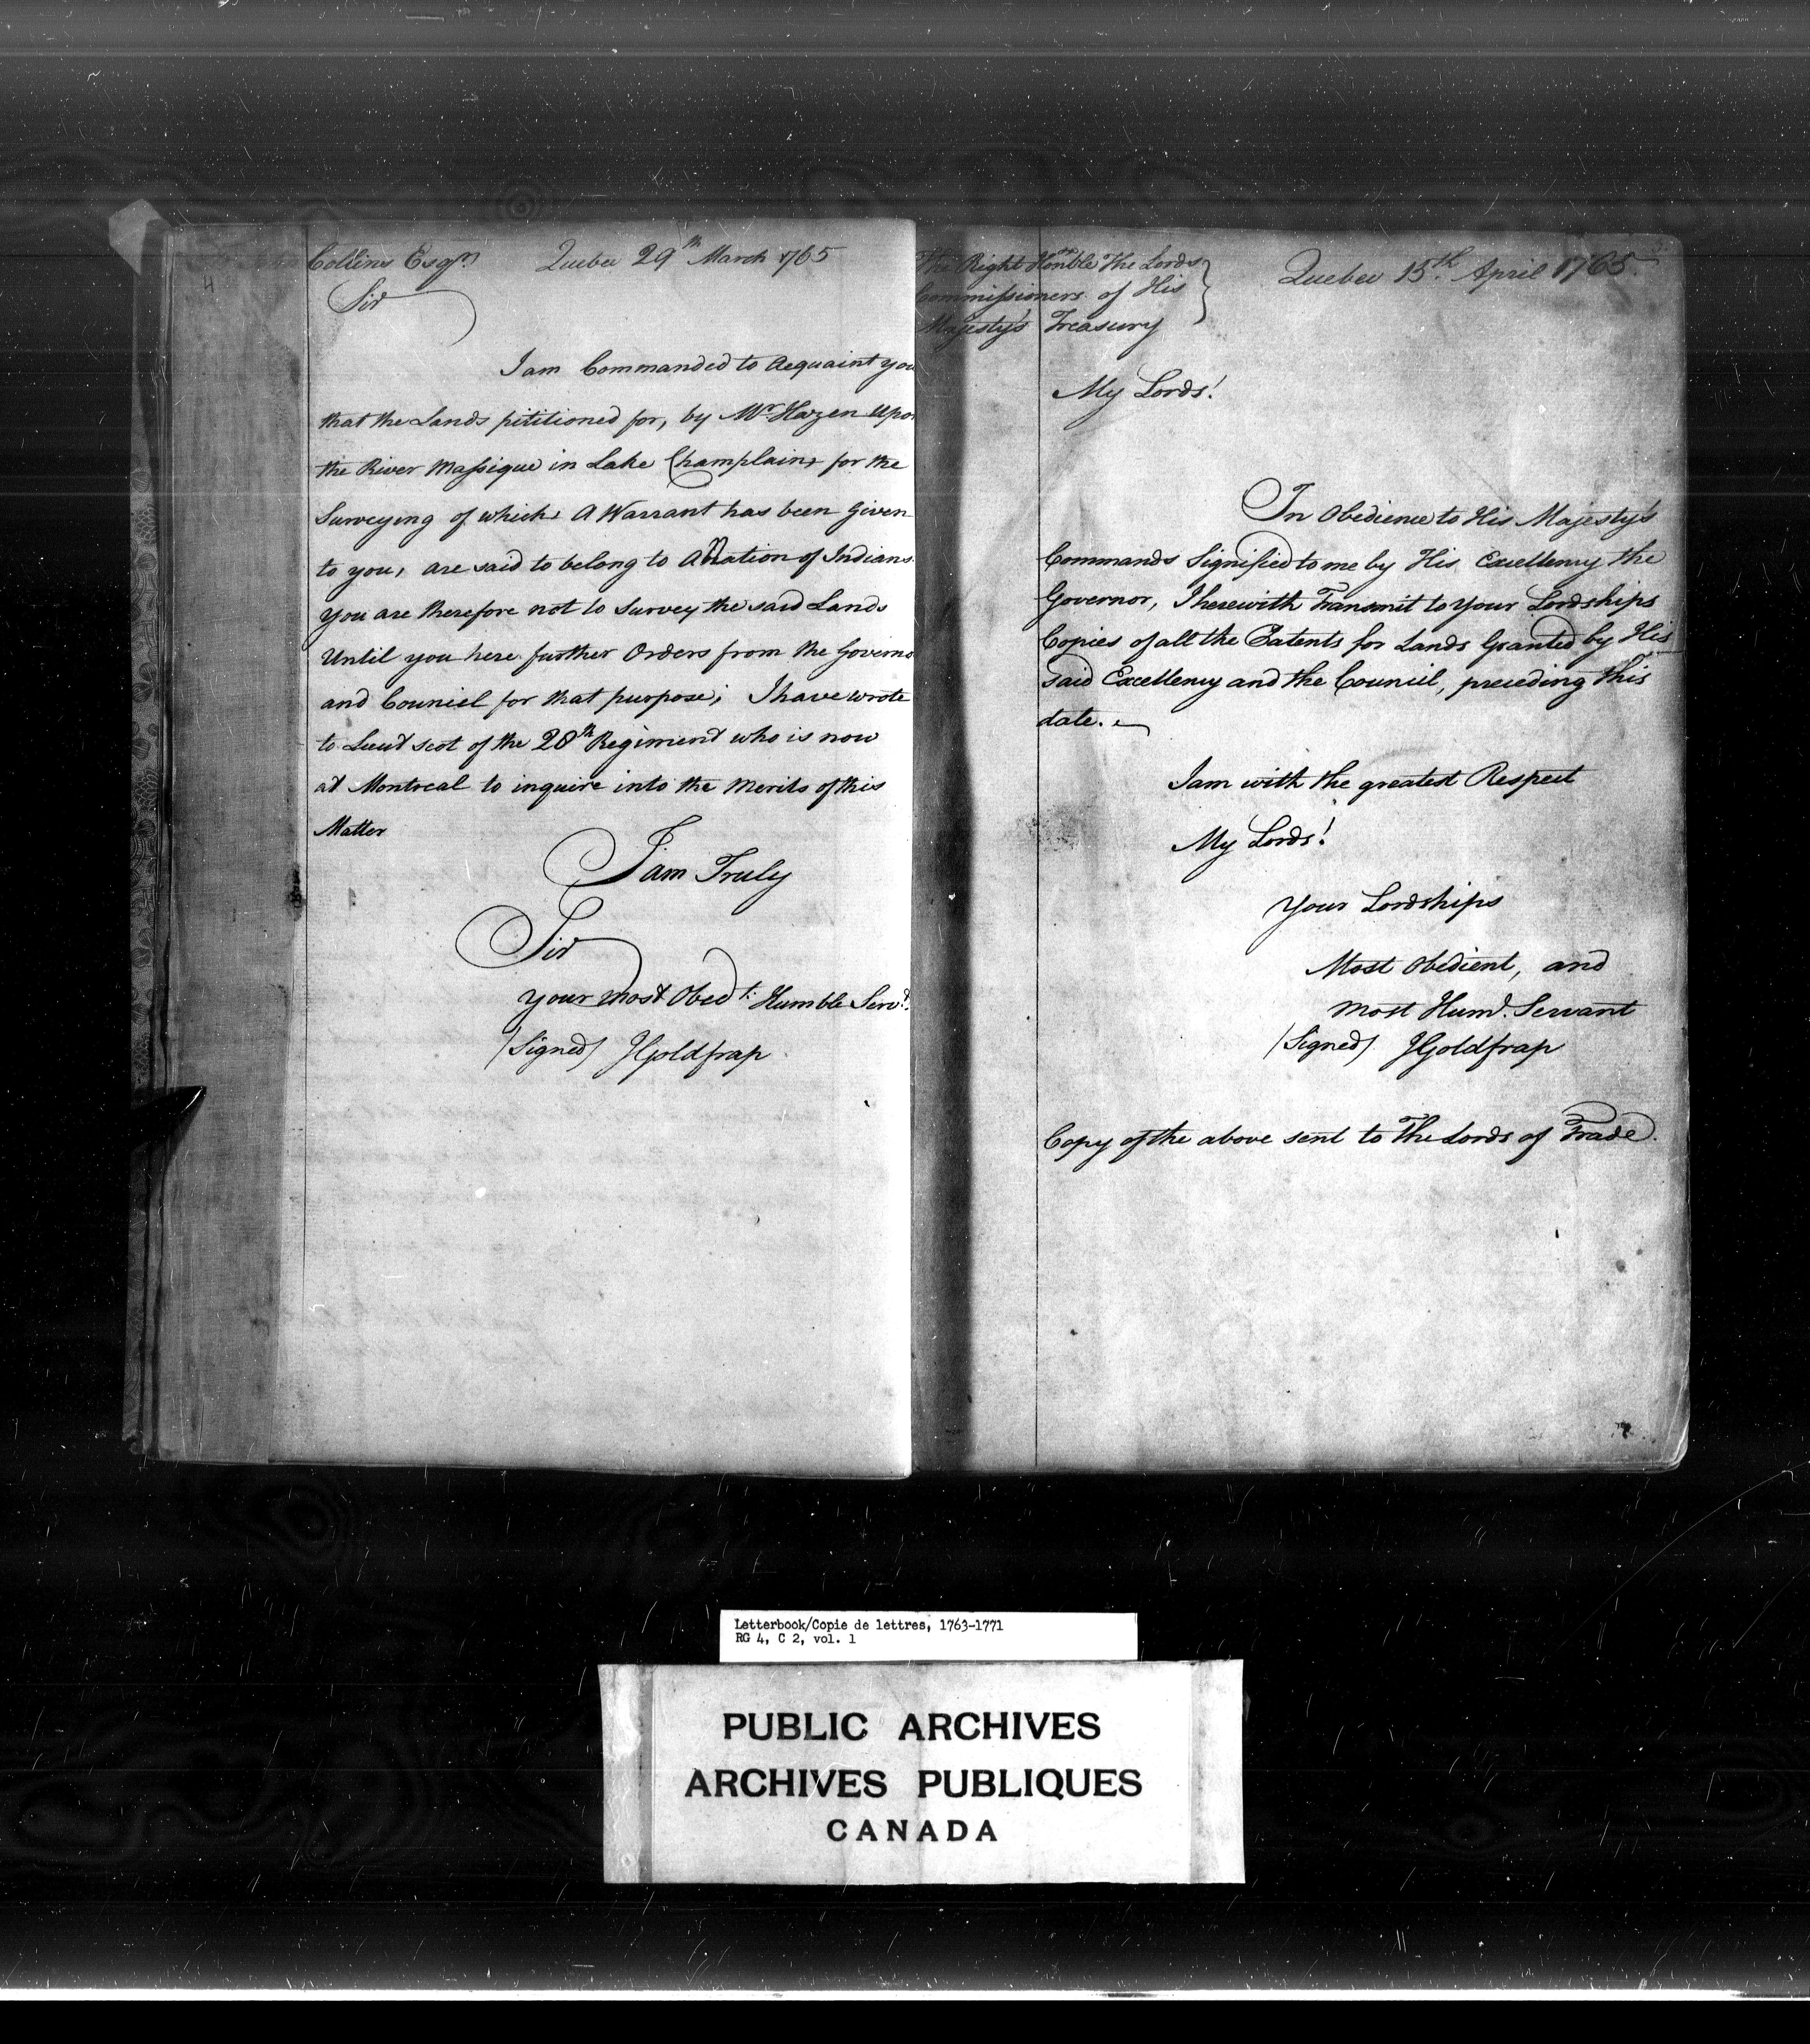 4
Collins Esqr. Quebec 29th March 1765
Sir
I am Commanded to Acquaint you
that the Lands pititioned for, by Mr. Hazen Upo
the River Massique in Lake Champlain, for the
Surveying of which, A Warrant has been Given
to you, are said to belong to A Nation of Indians.
You are therefore not to Survey the said Lands
Until you here further Orders from the Governo
and Council for that purpose; I have wrote
to Lieut Scot of the 28th Regiment who is now
at Montreal to inquire into the Merits of this
Matter
I am Truly
Sir
Your most Obedt. Humble Servt.
/Signed/ JGoldfrap
The Right Honble The Lords
Commissioners of His
Majesty's Treasury
Quebec 15th. April 1765.
My Lords!
In Obedience to His Majesty's
Commands Signified to me by His Excellency the
Governor, I herewith Transmit to Your Lordships
Copies of all the Patents for Lands Granted by His
said Excellency and the Council, preceding this
date.
I am with the greatest Respect
My Lords!
Your Lordships
Most Obedient, and
Most Huml. Servant
/Signed/ JGoldfrap
Copy of the above sent to The Lords of Trade.
Letterbook/Copie de lettres, 1763-1771
RG 4, C 2, vol. 1
PUBLIC ARCHIVES
ARCHIVES PUBLIQUES
CANADA